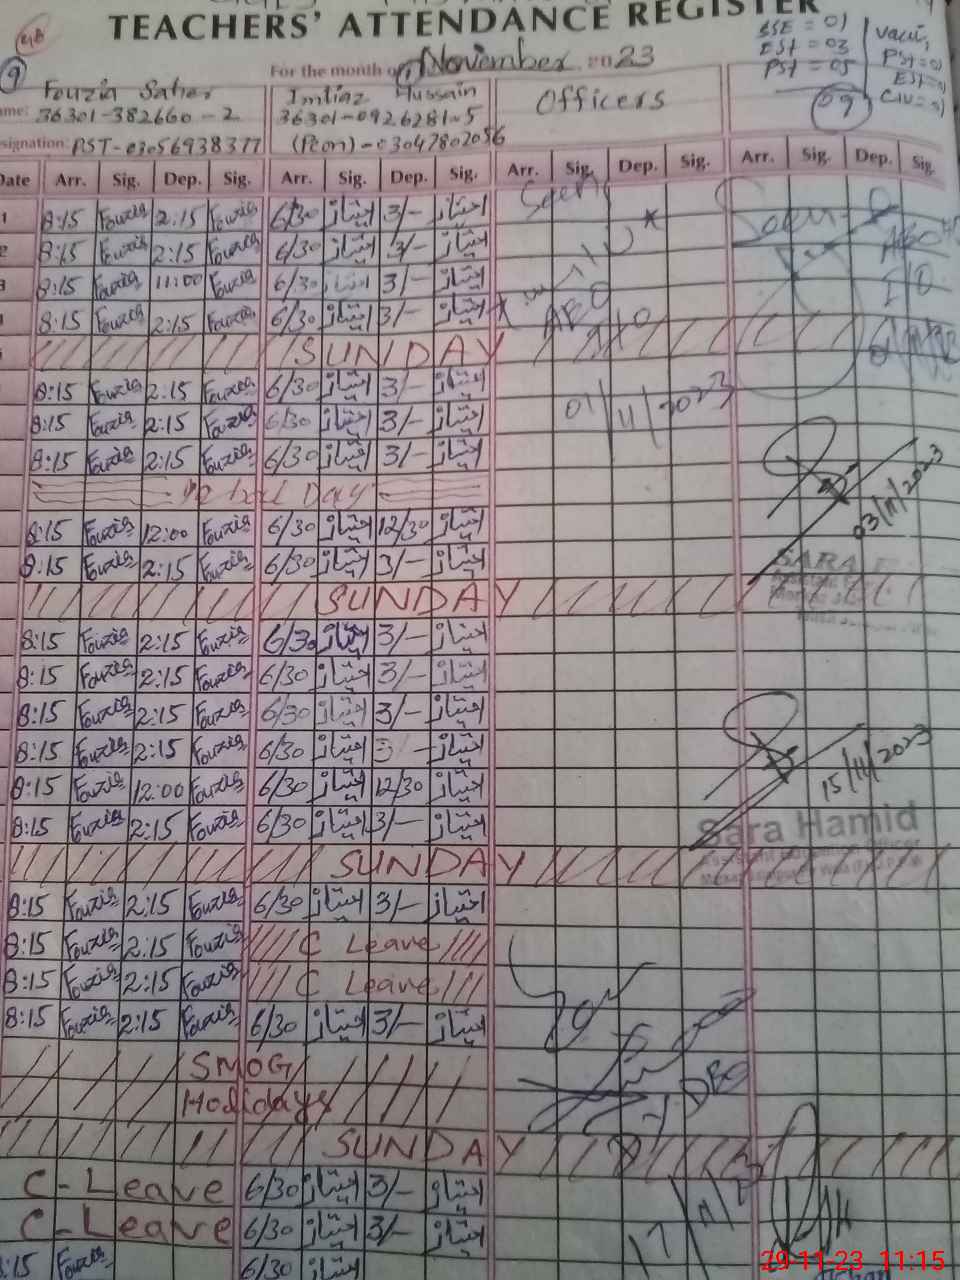 TEACHERS' ATTENDANCE REGISTER
SSE = 01
EST = 03
PST = 05
09
9
For the month of November 2023
Fouzia Saher Imtiaz Hussain Officers
36301-382660-2 36301-0926281-5
signation: PST-03056938377 (Peon)-03047802056
Date Arr. Sig. Dep. Sig. Arr. Sig. Dep. Sig. Arr. Sig. Dep. Sig. Arr. Sig. Dep. Sig.
1 8:15 Fouzia 2:15 Fouzia 6/30 امتیاز 3/- امتیاز Seen
2 8:15 Fouzia 2:15 Fouzia 6/30 امتیاز 3/- امتیاز
3 8:15 Fouzia 11:00 Fouzia 6/30 امتیاز 3/- امتیاز
8:15 Fouzia 2:15 Fouzia 6/30 امتیاز 3/- امتیاز AEO
SUNDAY
8:15 Fouzia 2:15 Fouzia 6/30 امتیاز 3/- امتیاز
8:15 Fouzia 2:15 Fouzia 6/30 امتیاز 3/- امتیاز 01/11/2023
8:15 Fouzia 2:15 Fouzia 6/30 امتیاز 3/- امتیاز
Iqbal Day
8:15 Fouzia 12:00 Fouzia 6/30 امتیاز 12/30 امتیاز 03/11/2023
8:15 Fouzia 2:15 Fouzia 6/30 امتیاز 3/- امتیاز SARA
SUNDAY
8:15 Fouzia 2:15 Fouzia 6/30 امتیاز 3/- امتیاز
8:15 Fouzia 2:15 Fouzia 6/30 امتیاز 3/- امتیاز
8:15 Fouzia 2:15 Fouzia 6/30 امتیاز 3/- امتیاز
8:15 Fouzia 2:15 Fouzia 6/30 امتیاز 3 - امتیاز 15/11/2023
8:15 Fouzia 12:00 Fouzia 6/30 امتیاز 12/30 امتیاز
8:15 Fouzia 2:15 Fouzia 6/30 امتیاز 3/- امتیاز Sara Hamid
SUNDAY
8:15 Fouzia 2:15 Fouzia 6/30 امتیاز 3/- امتیاز
8:15 Fouzia 2:15 Fouzia C Leave
8:15 Fouzia 2:15 Fouzia C Leave
8:15 Fouzia 2:15 Fouzia 6/30 امتیاز 3/- امتیاز
SMOG
Holidays
SUNDAY
C-Leave 6/30 امتیاز 3/- امتیاز
C-Leave 6/30 امتیاز 3/- امتیاز
8:15 Fouzia 6/30 امتیاز
29-11-23 11:15